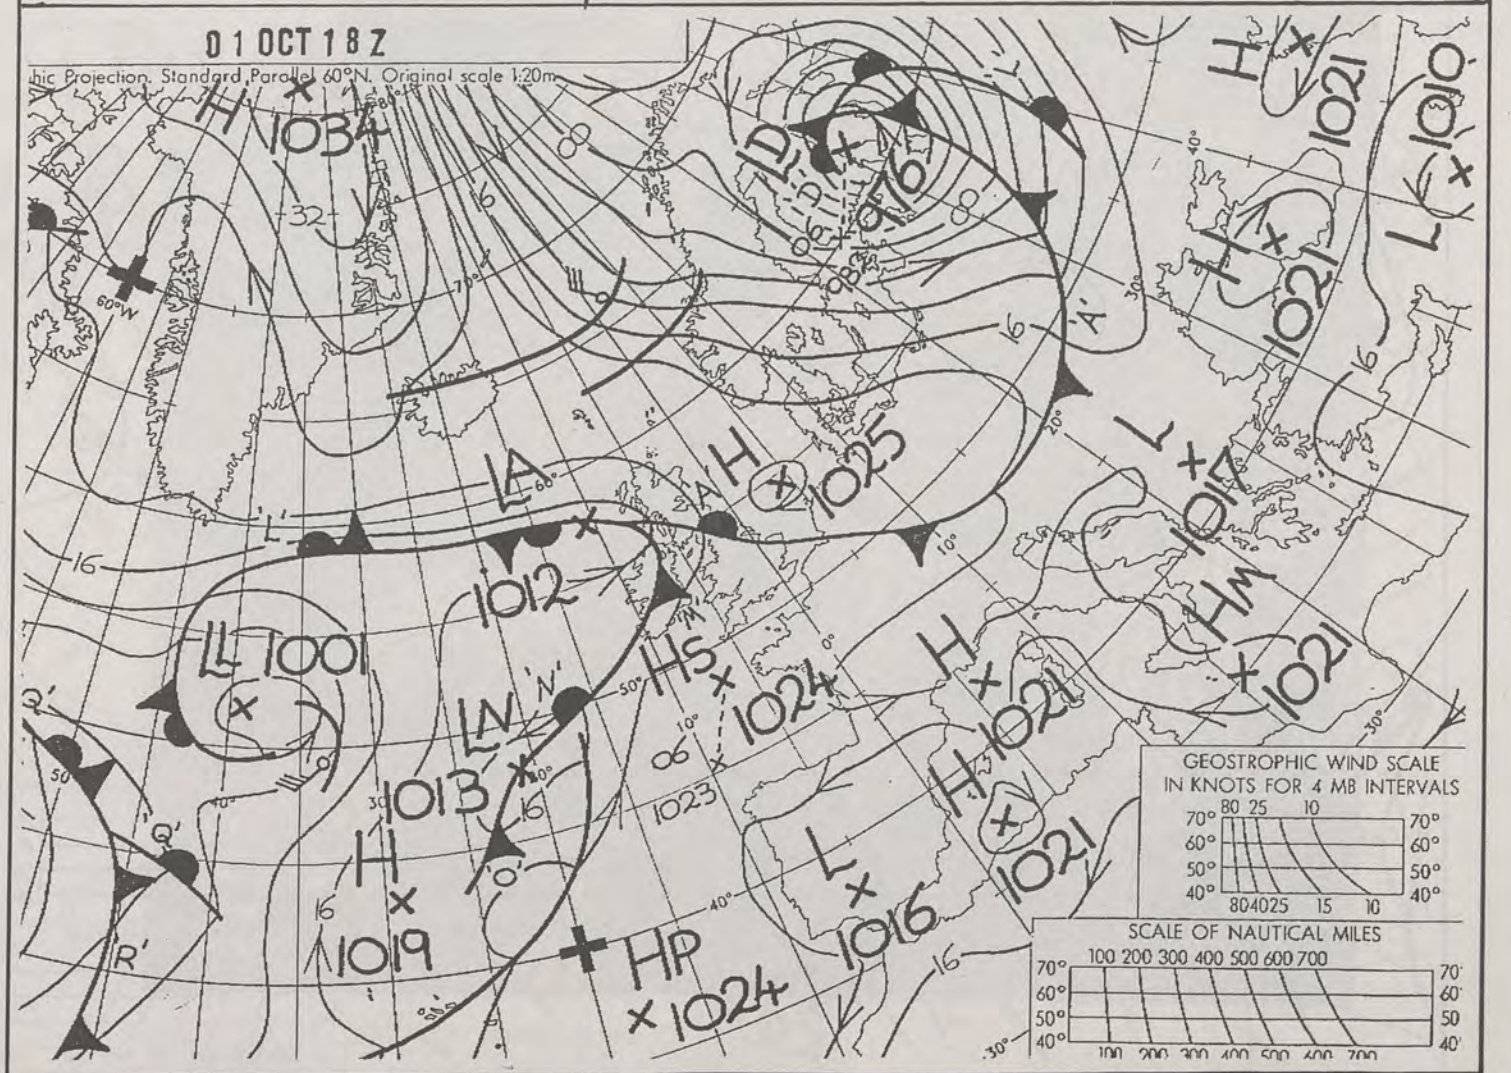 01 OCT 18Z
hic Projection. Standard Parallel 60°N. Original scale 1:20m
H 1034
80°
32
16
8
LD
D
976
06
987
8
'L'
H 1021
L 1010
40°
H 1021
30°
'A'
16
16
70°
60°W
H 1025
20°
L 1017
LA
60°
'A'
'L'
16
1012
10°
HM 1021
LL 1001
'M'
HS 1024
0°
H 1021
30°
LN
'N'
50°
10°
1013
20°
16
06
1023
Q'
50
40°
30
'Q'
H 1019
16
'O'
R'
H 1021
L 1016
40°
HP 1024
16
30°
GEOSTROPHIC WIND SCALE
IN KNOTS FOR 4 MB INTERVALS
80 25 10
70° 70°
60° 60°
50° 50°
40° 40°
80 40 25 15 10
SCALE OF NAUTICAL MILES
100 200 300 400 500 600 700
70° 70
60° 60
50° 50
40° 40
100 200 300 400 500 600 700